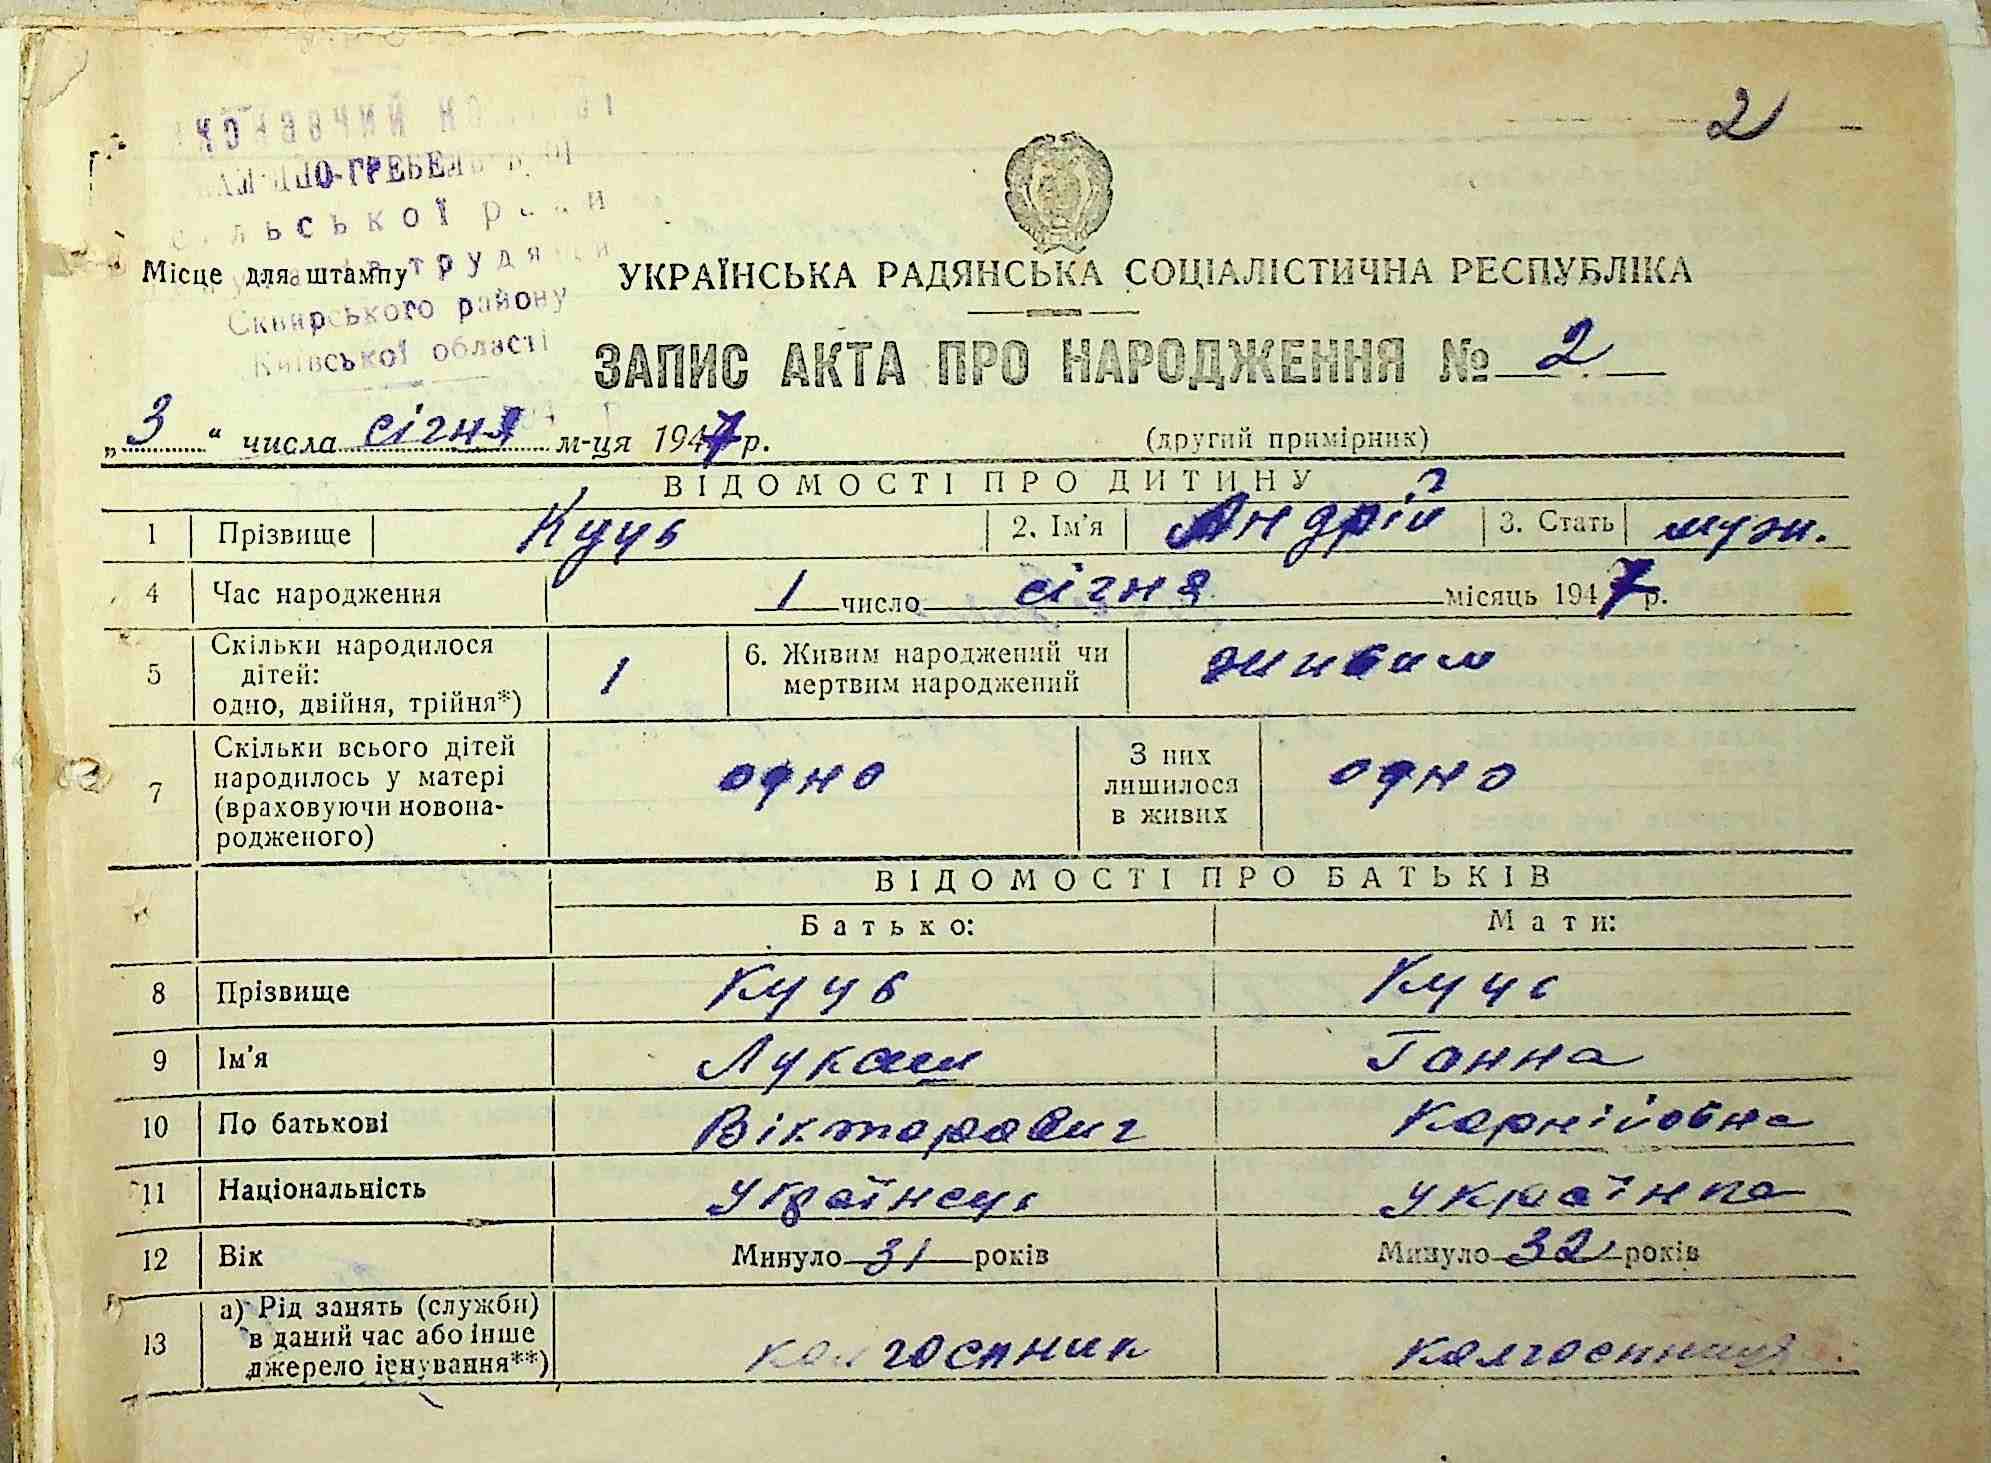 2
сільської ради
Сквирського району
Київської області
Місце для штампу
УКРАЇНСЬКА РАДЯНСЬКА СОЦІАЛІСТИЧНА РЕСПУБЛІКА
ЗАПИС АКТА ПРО НАРОДЖЕННЯ № 2
„3“ числа січня м-ця 1947 р.
(другий примірник)
ВІДОМОСТІ ПРО ДИТИНУ
1 Прізвище Куць 2. Ім'я Андрій 3. Стать муж.
4 Час народження 1 число січня місяць 1947 р.
5 Скільки народилося дітей: одно, двійня, трійня*) 1 6. Живим народжений чи мертвим народжений живим
7 Скільки всього дітей народилось у матері (враховуючи новона-родженого) одно З них лишилося в живих одно
ВІДОМОСТІ ПРО БАТЬКІВ
Батько: Мати:
8 Прізвище Куць Куць
9 Ім'я Лукаш Ганна
10 По батькові Вікторович Корніївна
11 Національність Українець Українка
12 Вік Минуло 31 років Минуло 32 років
13 а) Рід занять (служби) в даний час або інше джерело існування**) колгоспник колгоспниця